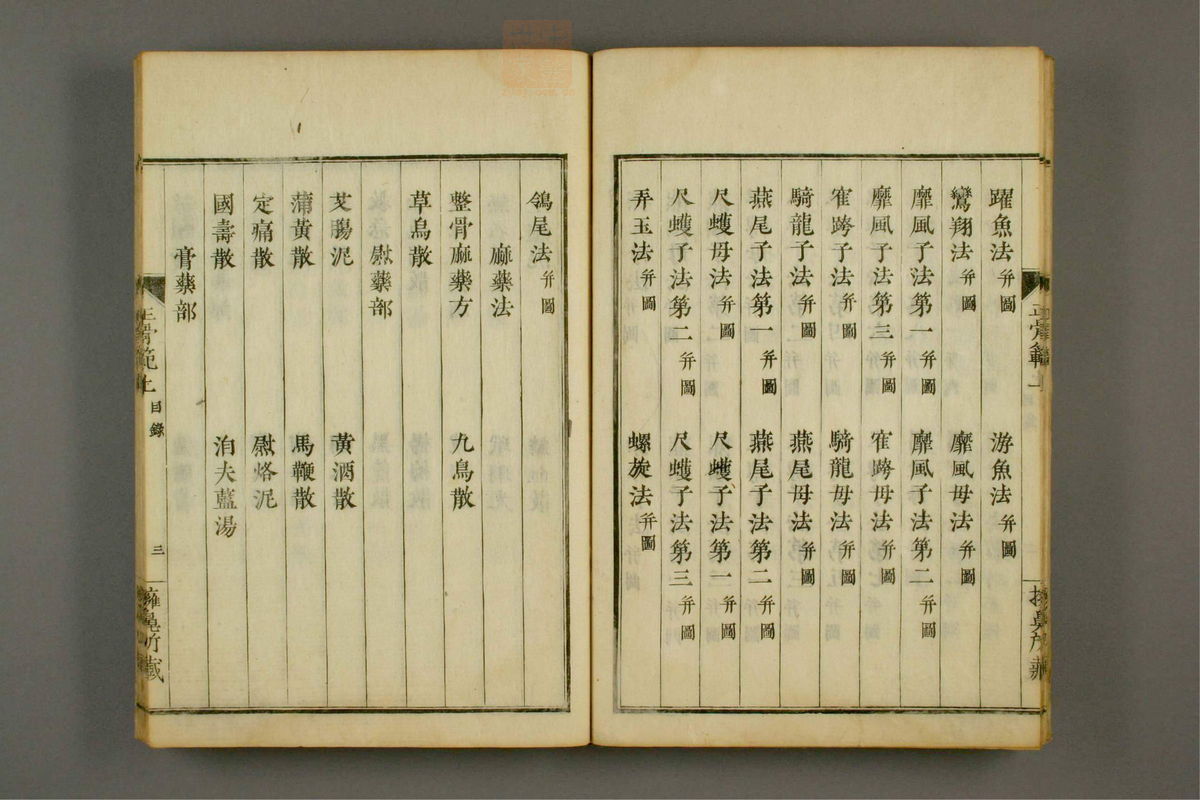 躍魚法 并圖 游魚法 并圖
鸞翔法 并圖 靡風母法 并圖
靡風子法第一 并圖 靡風子法第二 并圖
靡風子法第三 并圖 寉跨母法 并圖
寉跨子法 并圖 騎龍母法 并圖
騎龍子法 并圖 燕尾母法 并圖
燕尾子法第一 并圖 燕尾子法第二 并圖
尺蠖母法 并圖 尺蠖子法第一 并圖
尺蠖子法第二 并圖 尺蠖子法第三 并圖
弄玉法 并圖 螺旋法 并圖
鴿尾法 并圖
麻藥法
整骨麻藥方 九烏散
草烏散
熨藥部
艾膓泥 黃酒散
蒲黃散 馬鞭散
定痛散 熨烙泥
國壽散 泊夫藍湯
膏藥部
正骨範上 目錄 三